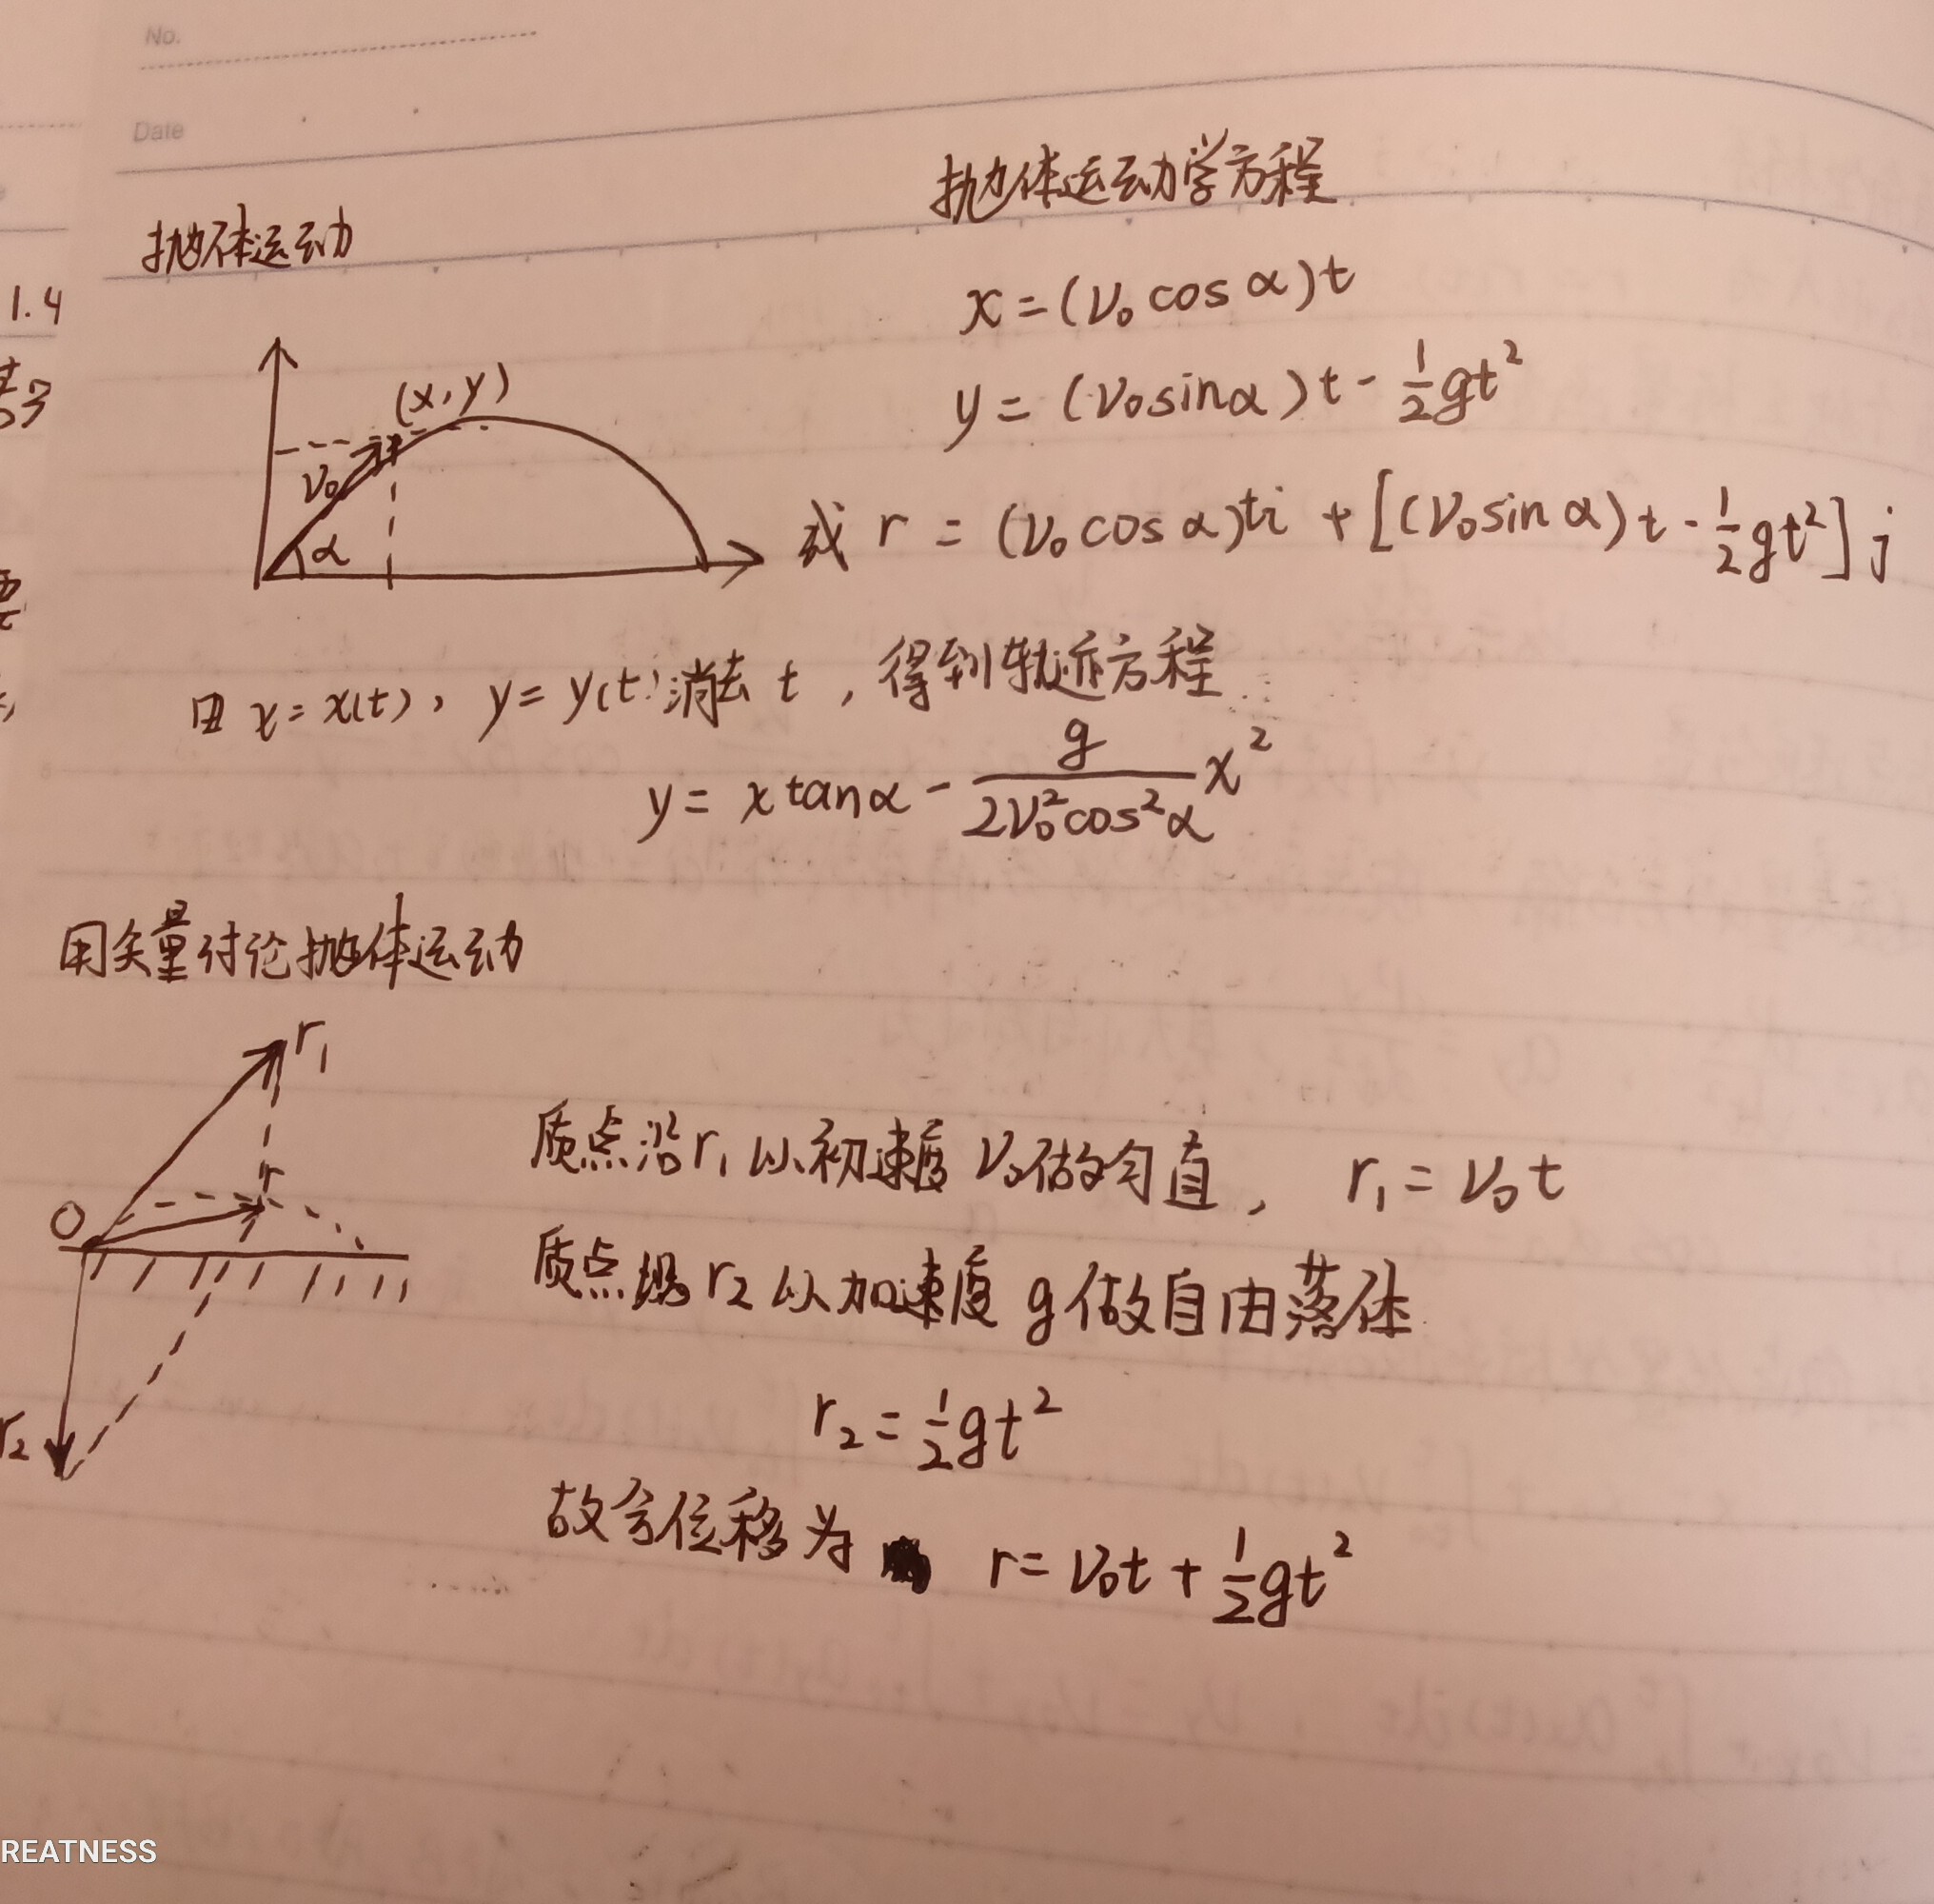 No.
Date
抛体运动
抛体运动学方程
1.4
x=(v₀ cos α)t
y=(v₀sinα)t-½gt²
(x,y)
v₀
α
或 r = (v₀ cos α)ti + [(v₀sin α)t-½gt²]j
由 x=x(t), y=y(t)消去 t,得到轨迹方程
y= x tanα - g/(2v₀²cos²α) x²
用矢量讨论抛体运动
r₁
r
O
r₂
质点沿r₁以初速度 v₀做匀直, r₁=v₀t
质点 r₂以加速度 g做自由落体
r₂=½gt²
故 位移为 r=v₀t+½gt²
REATNESS